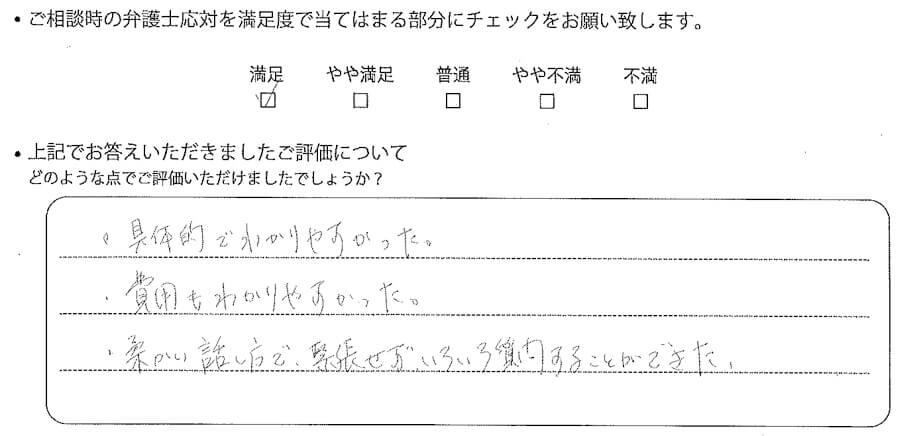 ・ご相談時の弁護士応対を満足度で当てはまる部分にチェックをお願い致します。
満足 やや満足 普通 やや不満 不満
☑ □ □ □ □
・上記でお答えいただきましたご評価について
どのような点でご評価いただけましたでしょうか？
・具体的でわかりやすかった。
・費用もわかりやすかった。
・柔かい話し方で、緊張せず、いろいろ質問することができた。